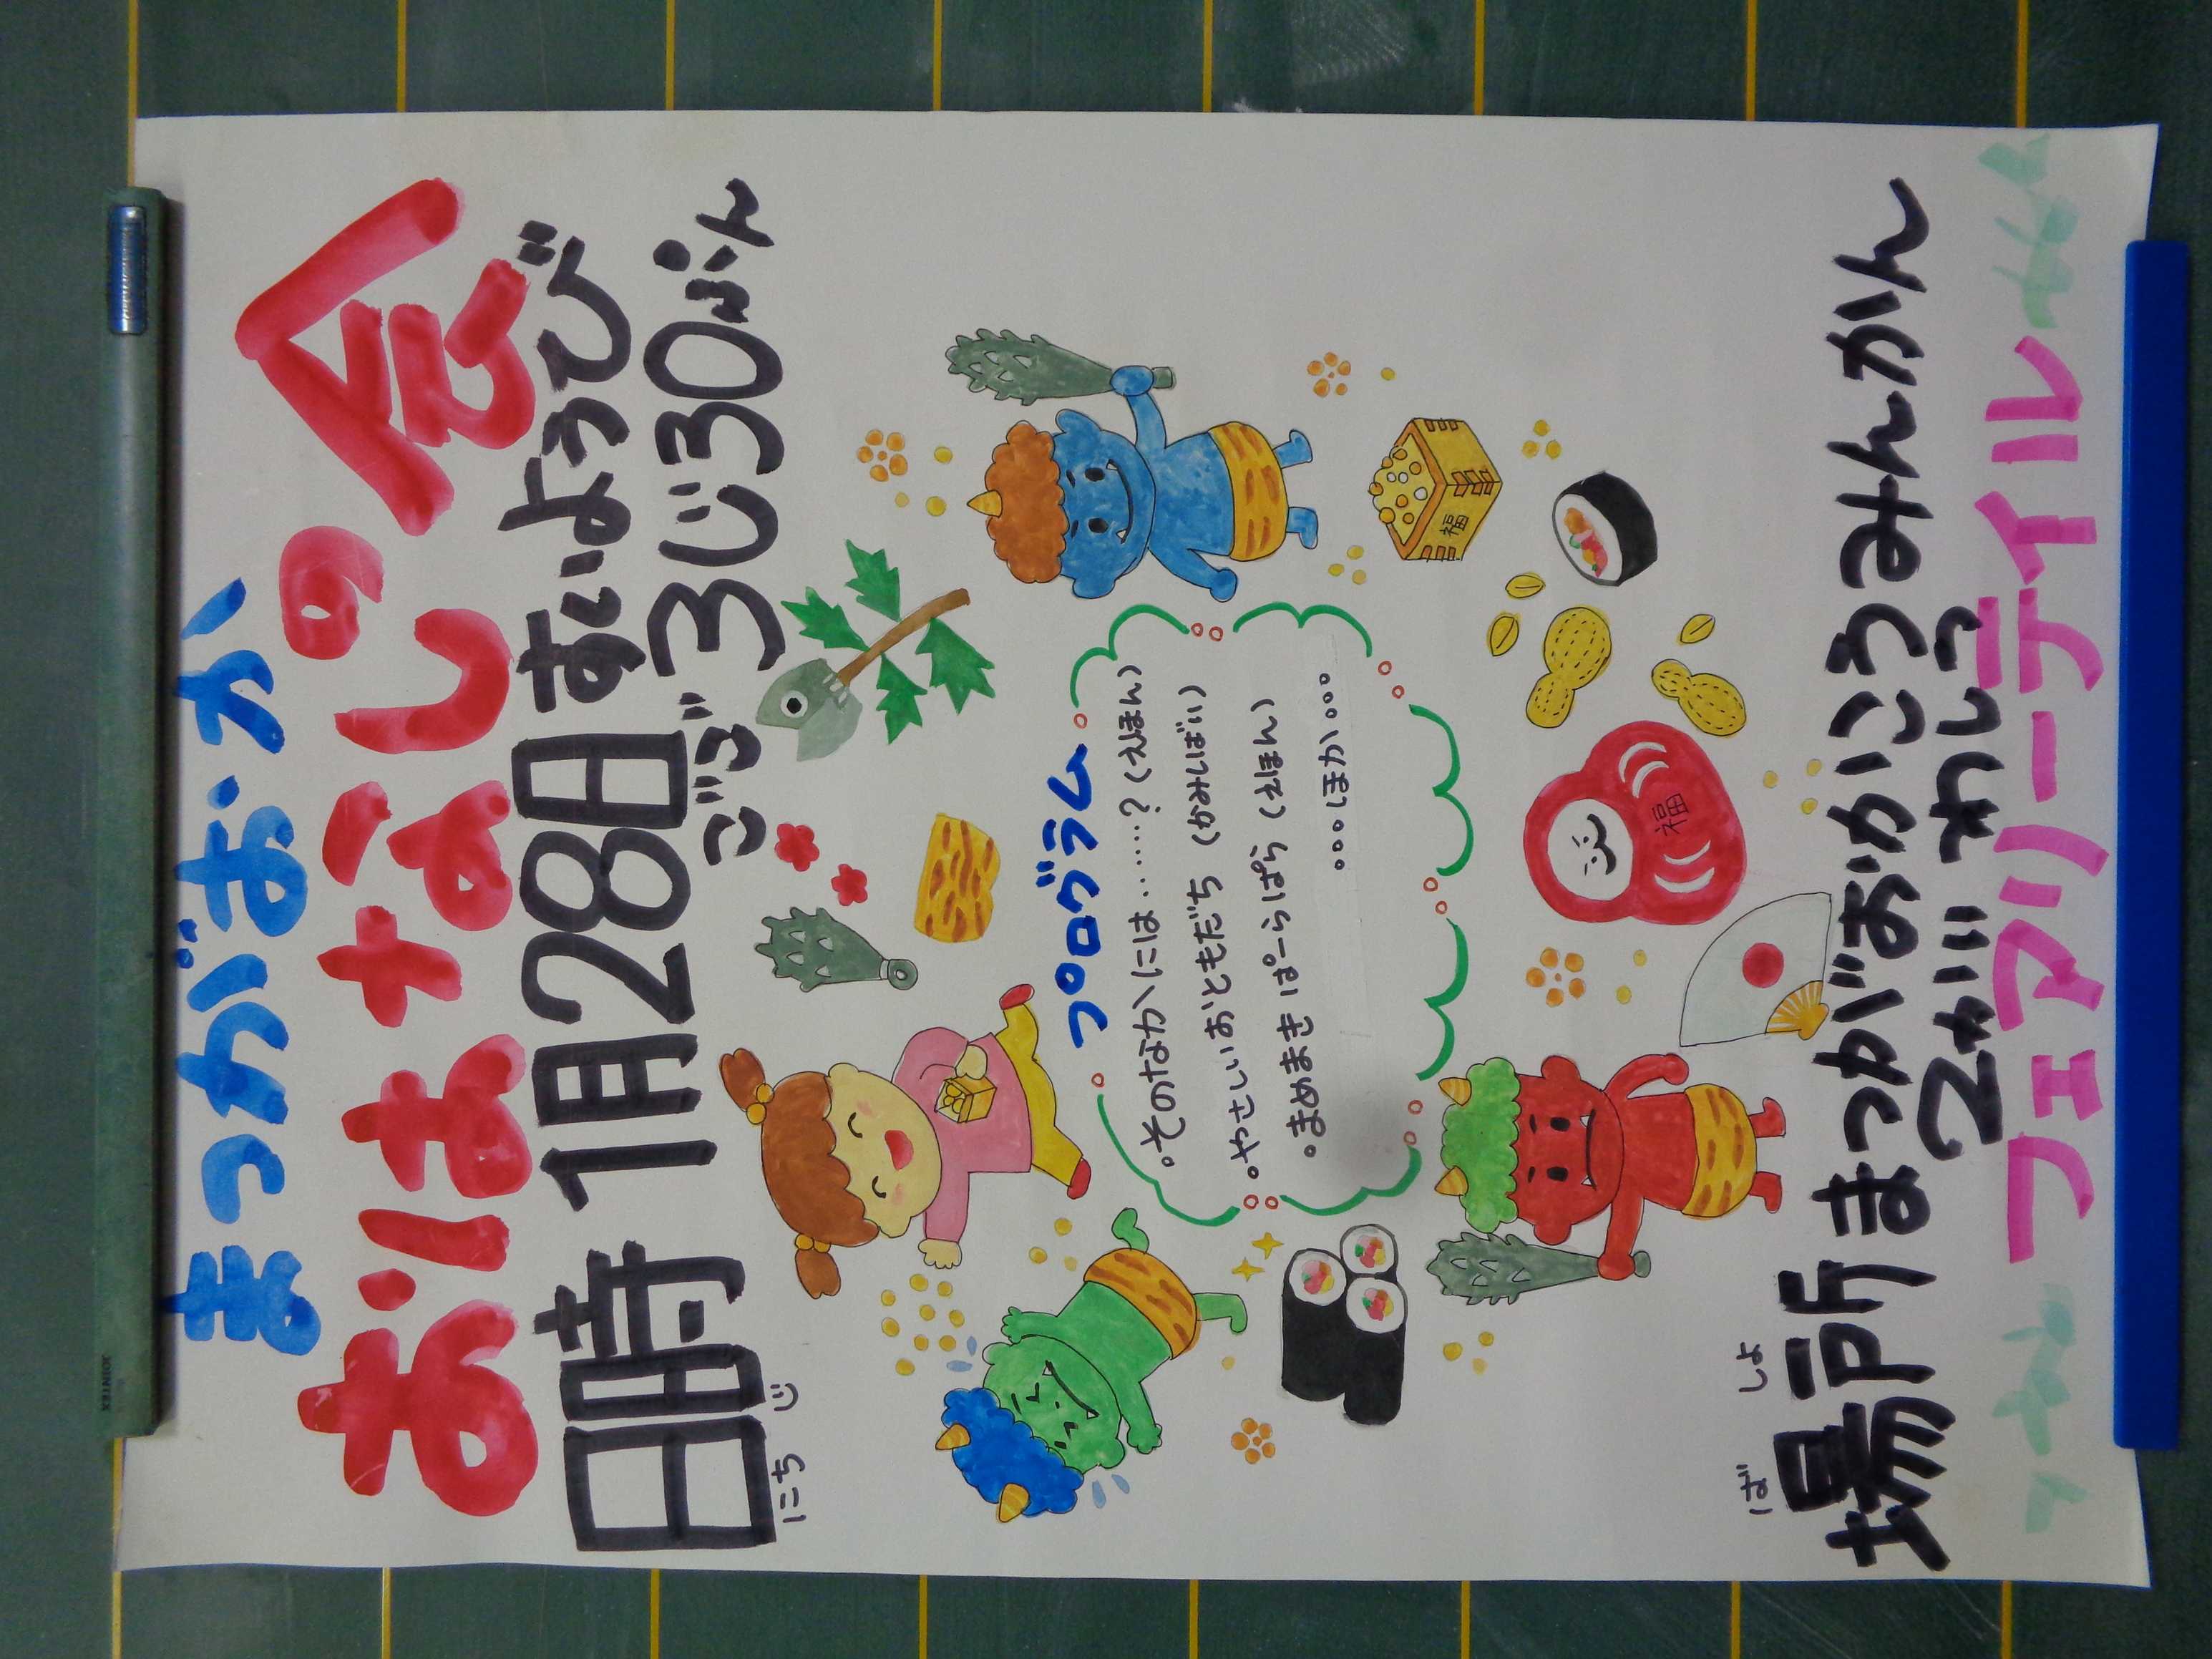 まつがおか
おはなしの会
にちじ
日時 1月28日 すいようび
ごご 3じ30ぷん
プログラム
・そのなかには……？(えほん)
・やさしいおともだち (かみしばい)
・まめまき ぱーらぱら (えほん)
…ほか…
福
福
ばしょ
場所 まつがおかこうみんかん
2かい わしつ
フェアリーテイル
JOINTEX